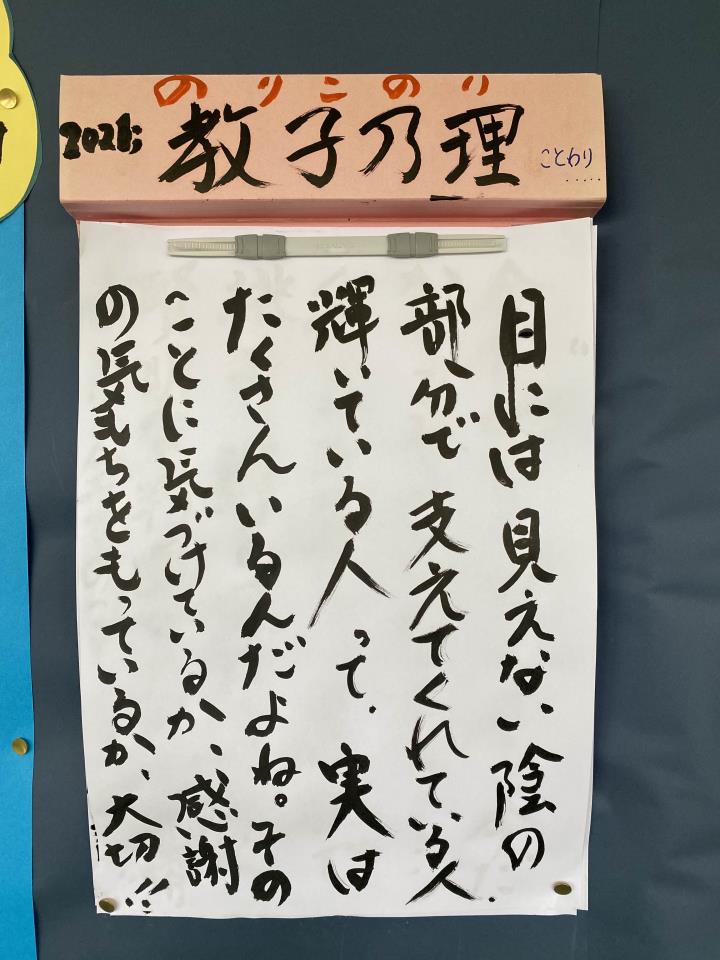 のりこのり
2021;
教子乃理
ことわり
.....
目には見えない陰の
部分で支えてくれている人.
輝いている人って、実は
たくさんいるんだよね。その
ことに気づけているか、感謝
の気もちをもっているか、大切!!